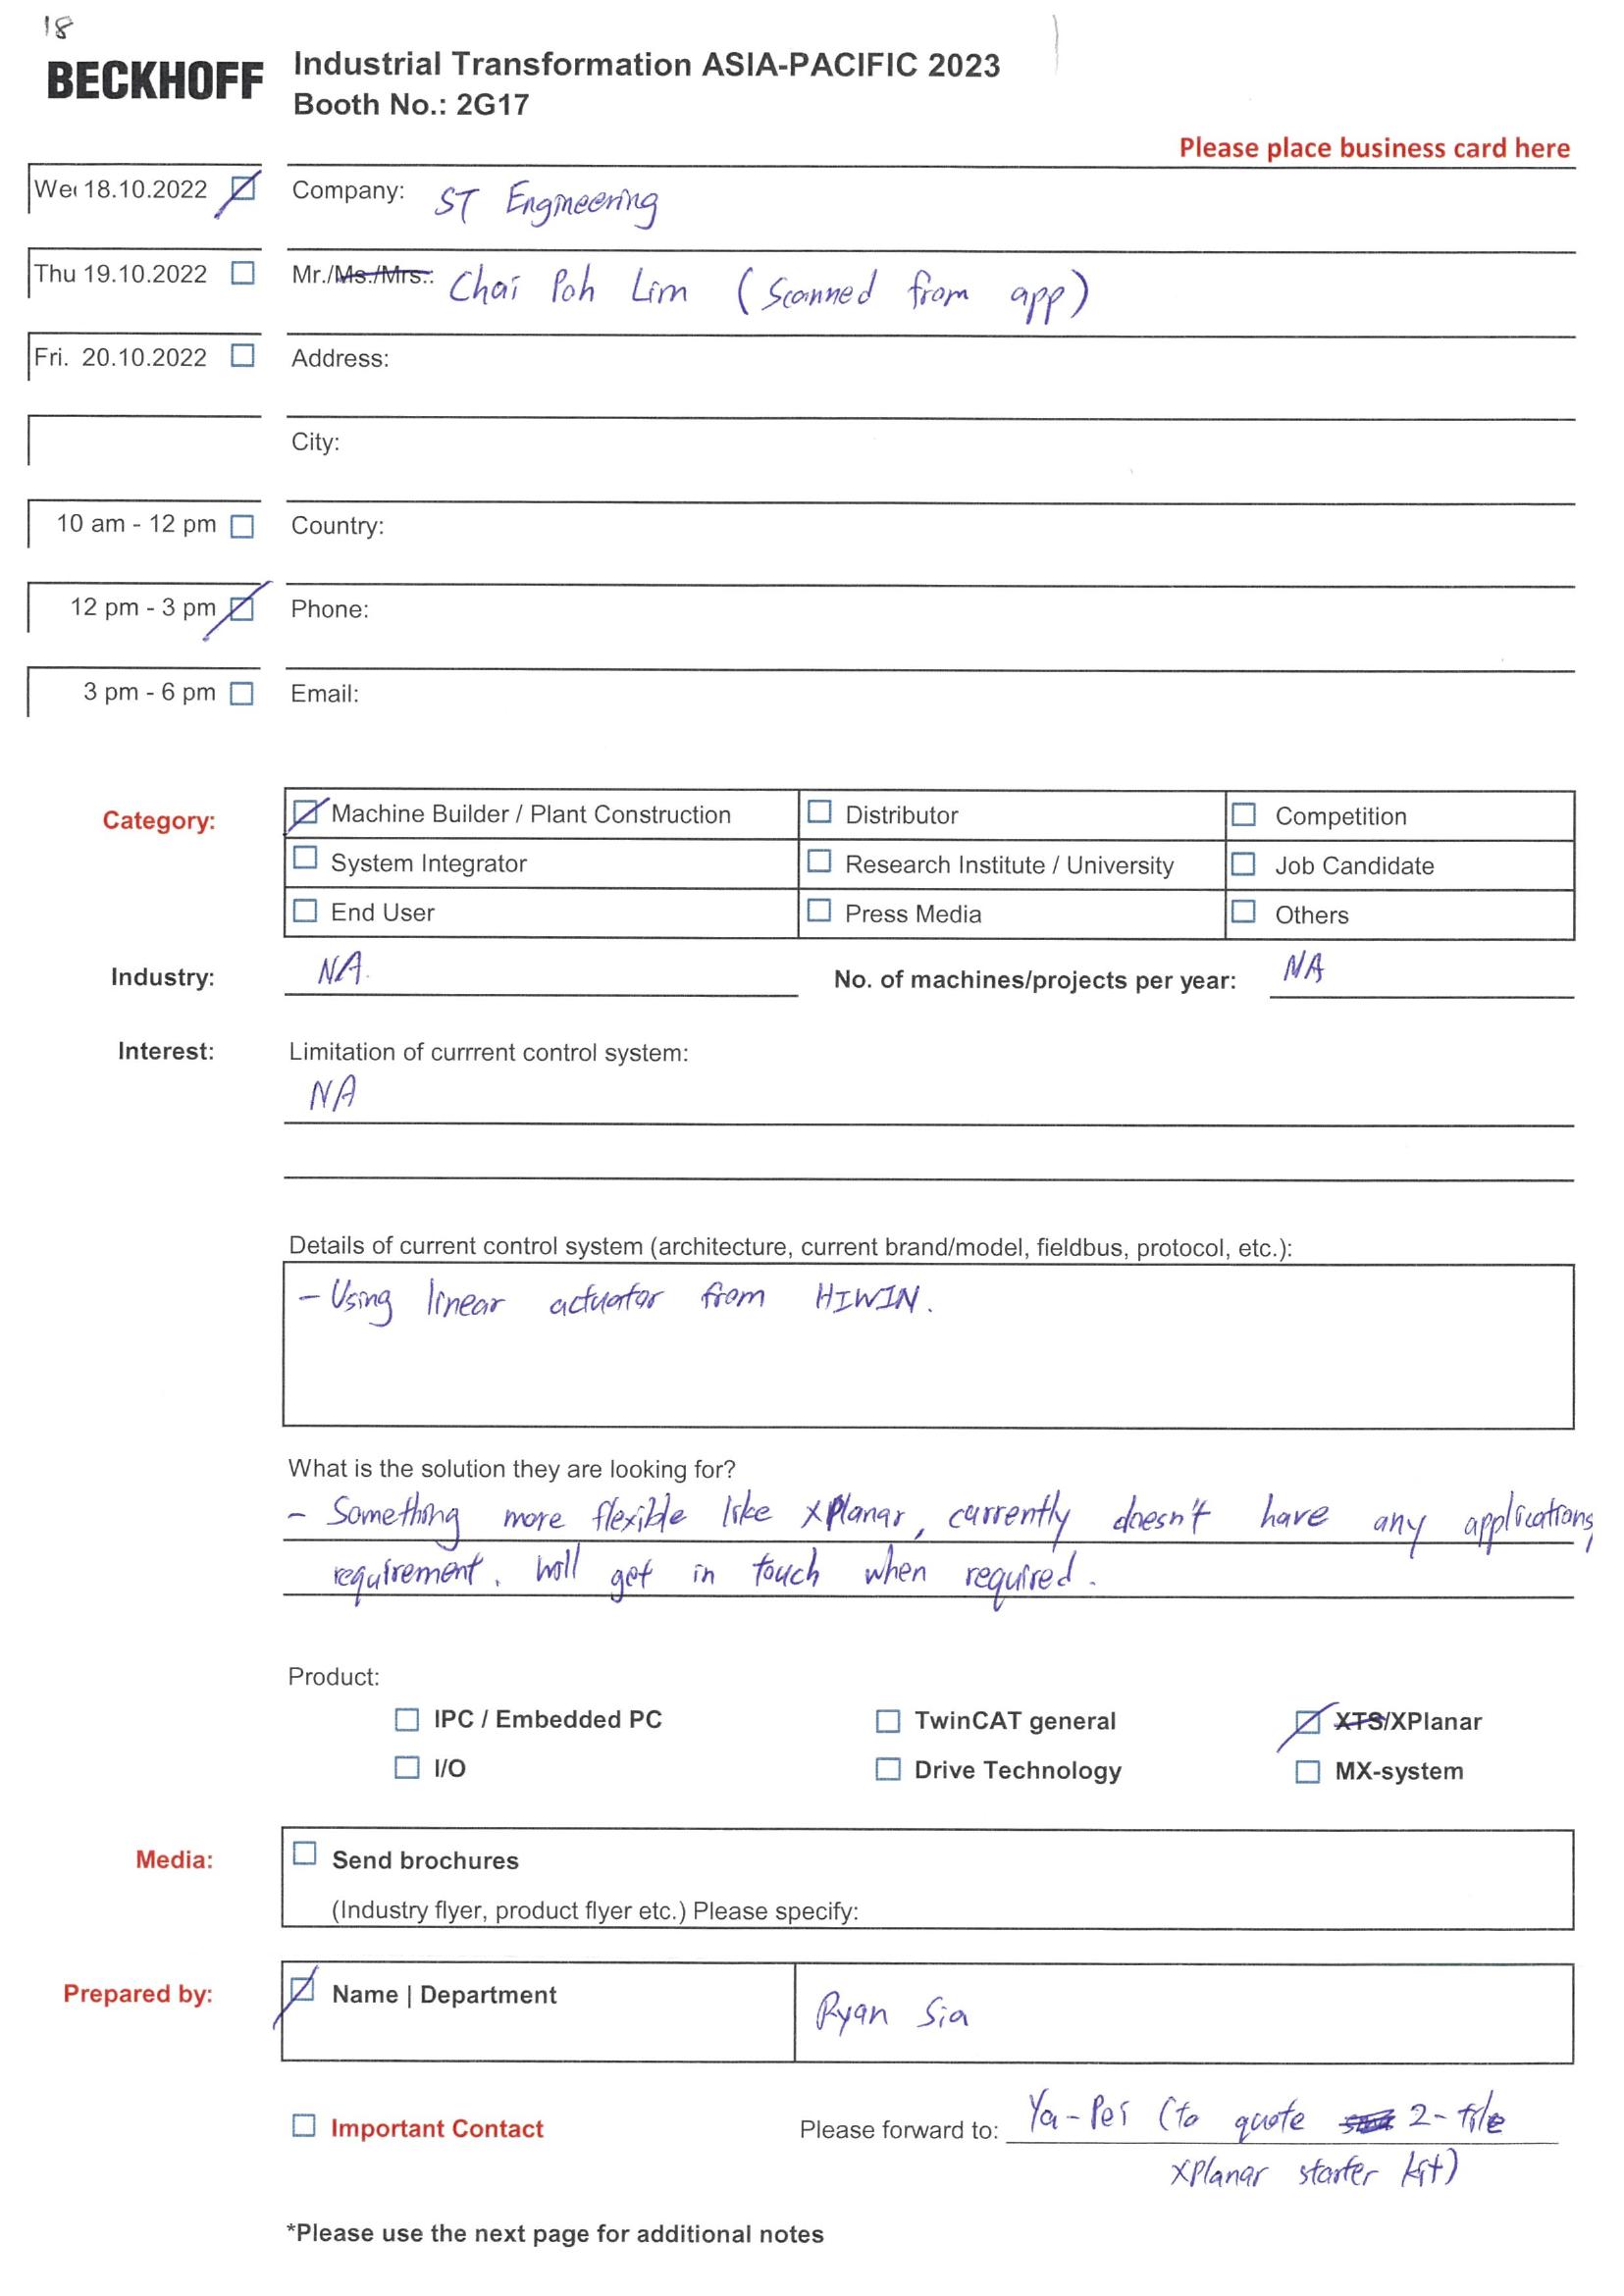 18
BECKHOFF
Industrial Transformation ASIA-PACIFIC 2023
Booth No.: 2G17
Please place business card here
Wed 18.10.2022
Company: ST Engineering
Thu 19.10.2022
Mr./Ms./Mrs.: Chai Poh Lim (Scanned from app)
Fri. 20.10.2022
Address:
City:
10 am - 12 pm
Country:
12 pm - 3 pm
Phone:
3 pm - 6 pm
Email:
Category:
Machine Builder / Plant Construction
Distributor
Competition
System Integrator
Research Institute / University
Job Candidate
End User
Press Media
Others
Industry: NA.
No. of machines/projects per year: NA
Interest:
Limitation of currrent control system:
NA
Details of current control system (architecture, current brand/model, fieldbus, protocol, etc.):
- Using linear actuator from HIWIN.
What is the solution they are looking for?
- Something more flexible like XPlanar, currently doesn't have any applications,
requirement. Will get in touch when required.
Product:
IPC / Embedded PC
TwinCAT general
XTS/XPlanar
I/O
Drive Technology
MX-system
Media:
Send brochures
(Industry flyer, product flyer etc.) Please specify:
Prepared by:
Name | Department
Ryan Sia
Important Contact
Please forward to: Ya-Pei (to quote 2-tile
XPlanar starter kit)
*Please use the next page for additional notes